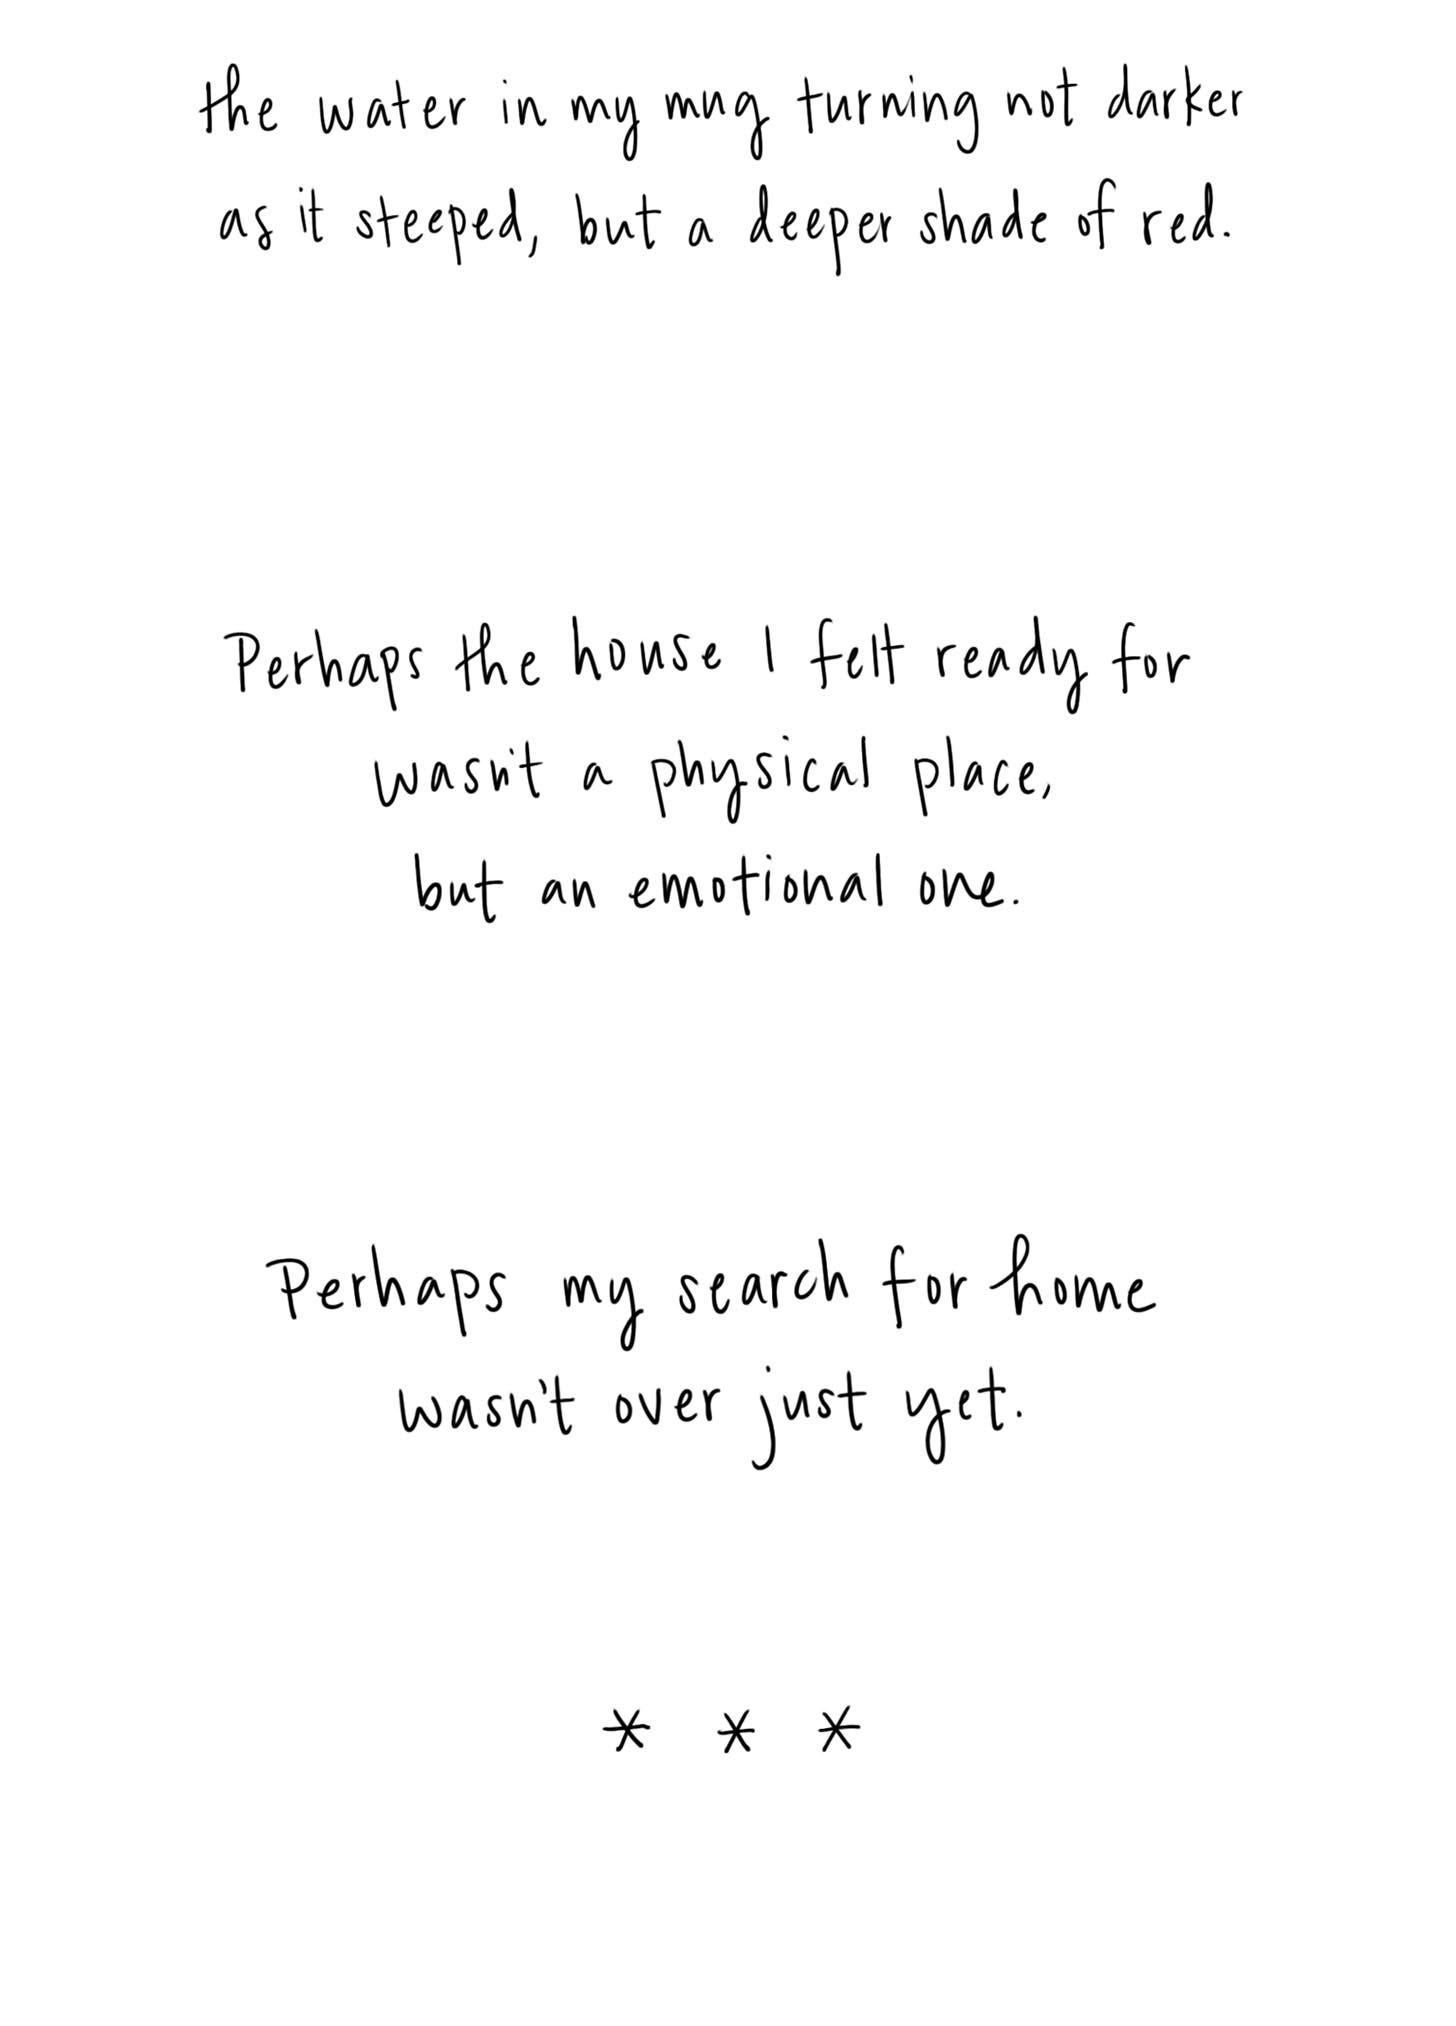 the water in my mug turning not darker
as it steeped, but a deeper shade of red.
Perhaps the house I felt ready for
wasn't a physical place,
but an emotional one.
Perhaps my search for home
wasn't over just yet.
* * *